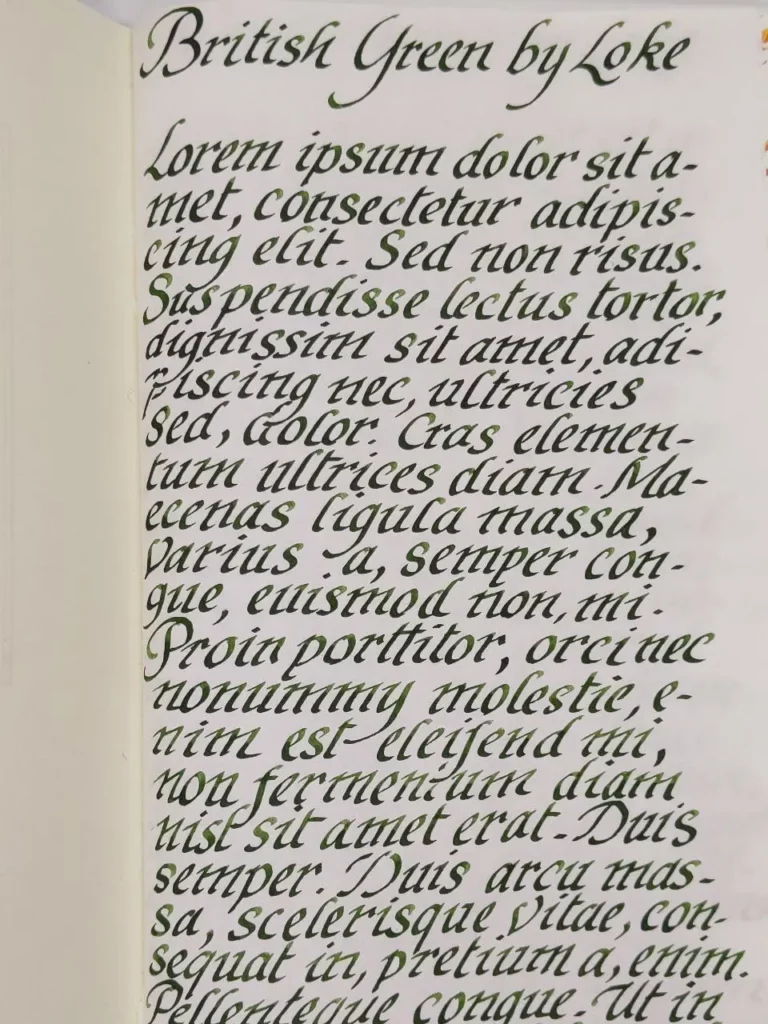 British Green by Loke
Lorem ipsum dolor sit a-
met, consectetur adipis-
cing elit. Sed non risus.
Suspendisse lectus tortor,
dignissim sit amet, adi-
piscing nec, ultricies
sed, dolor. Cras elemen-
tum ultrices diam. Ma-
ecenas ligula massa,
varius a, semper con-
gue, euismod non, mi.
Proin porttitor, orci nec
nonummy molestie, e-
nim est eleifend mi,
non fermentum diam
nisl sit amet erat. Duis
semper. Duis arcu mas-
sa, scelerisque vitae, con-
sequat in, pretium a, enim.
Pellenteque congue. Ut in